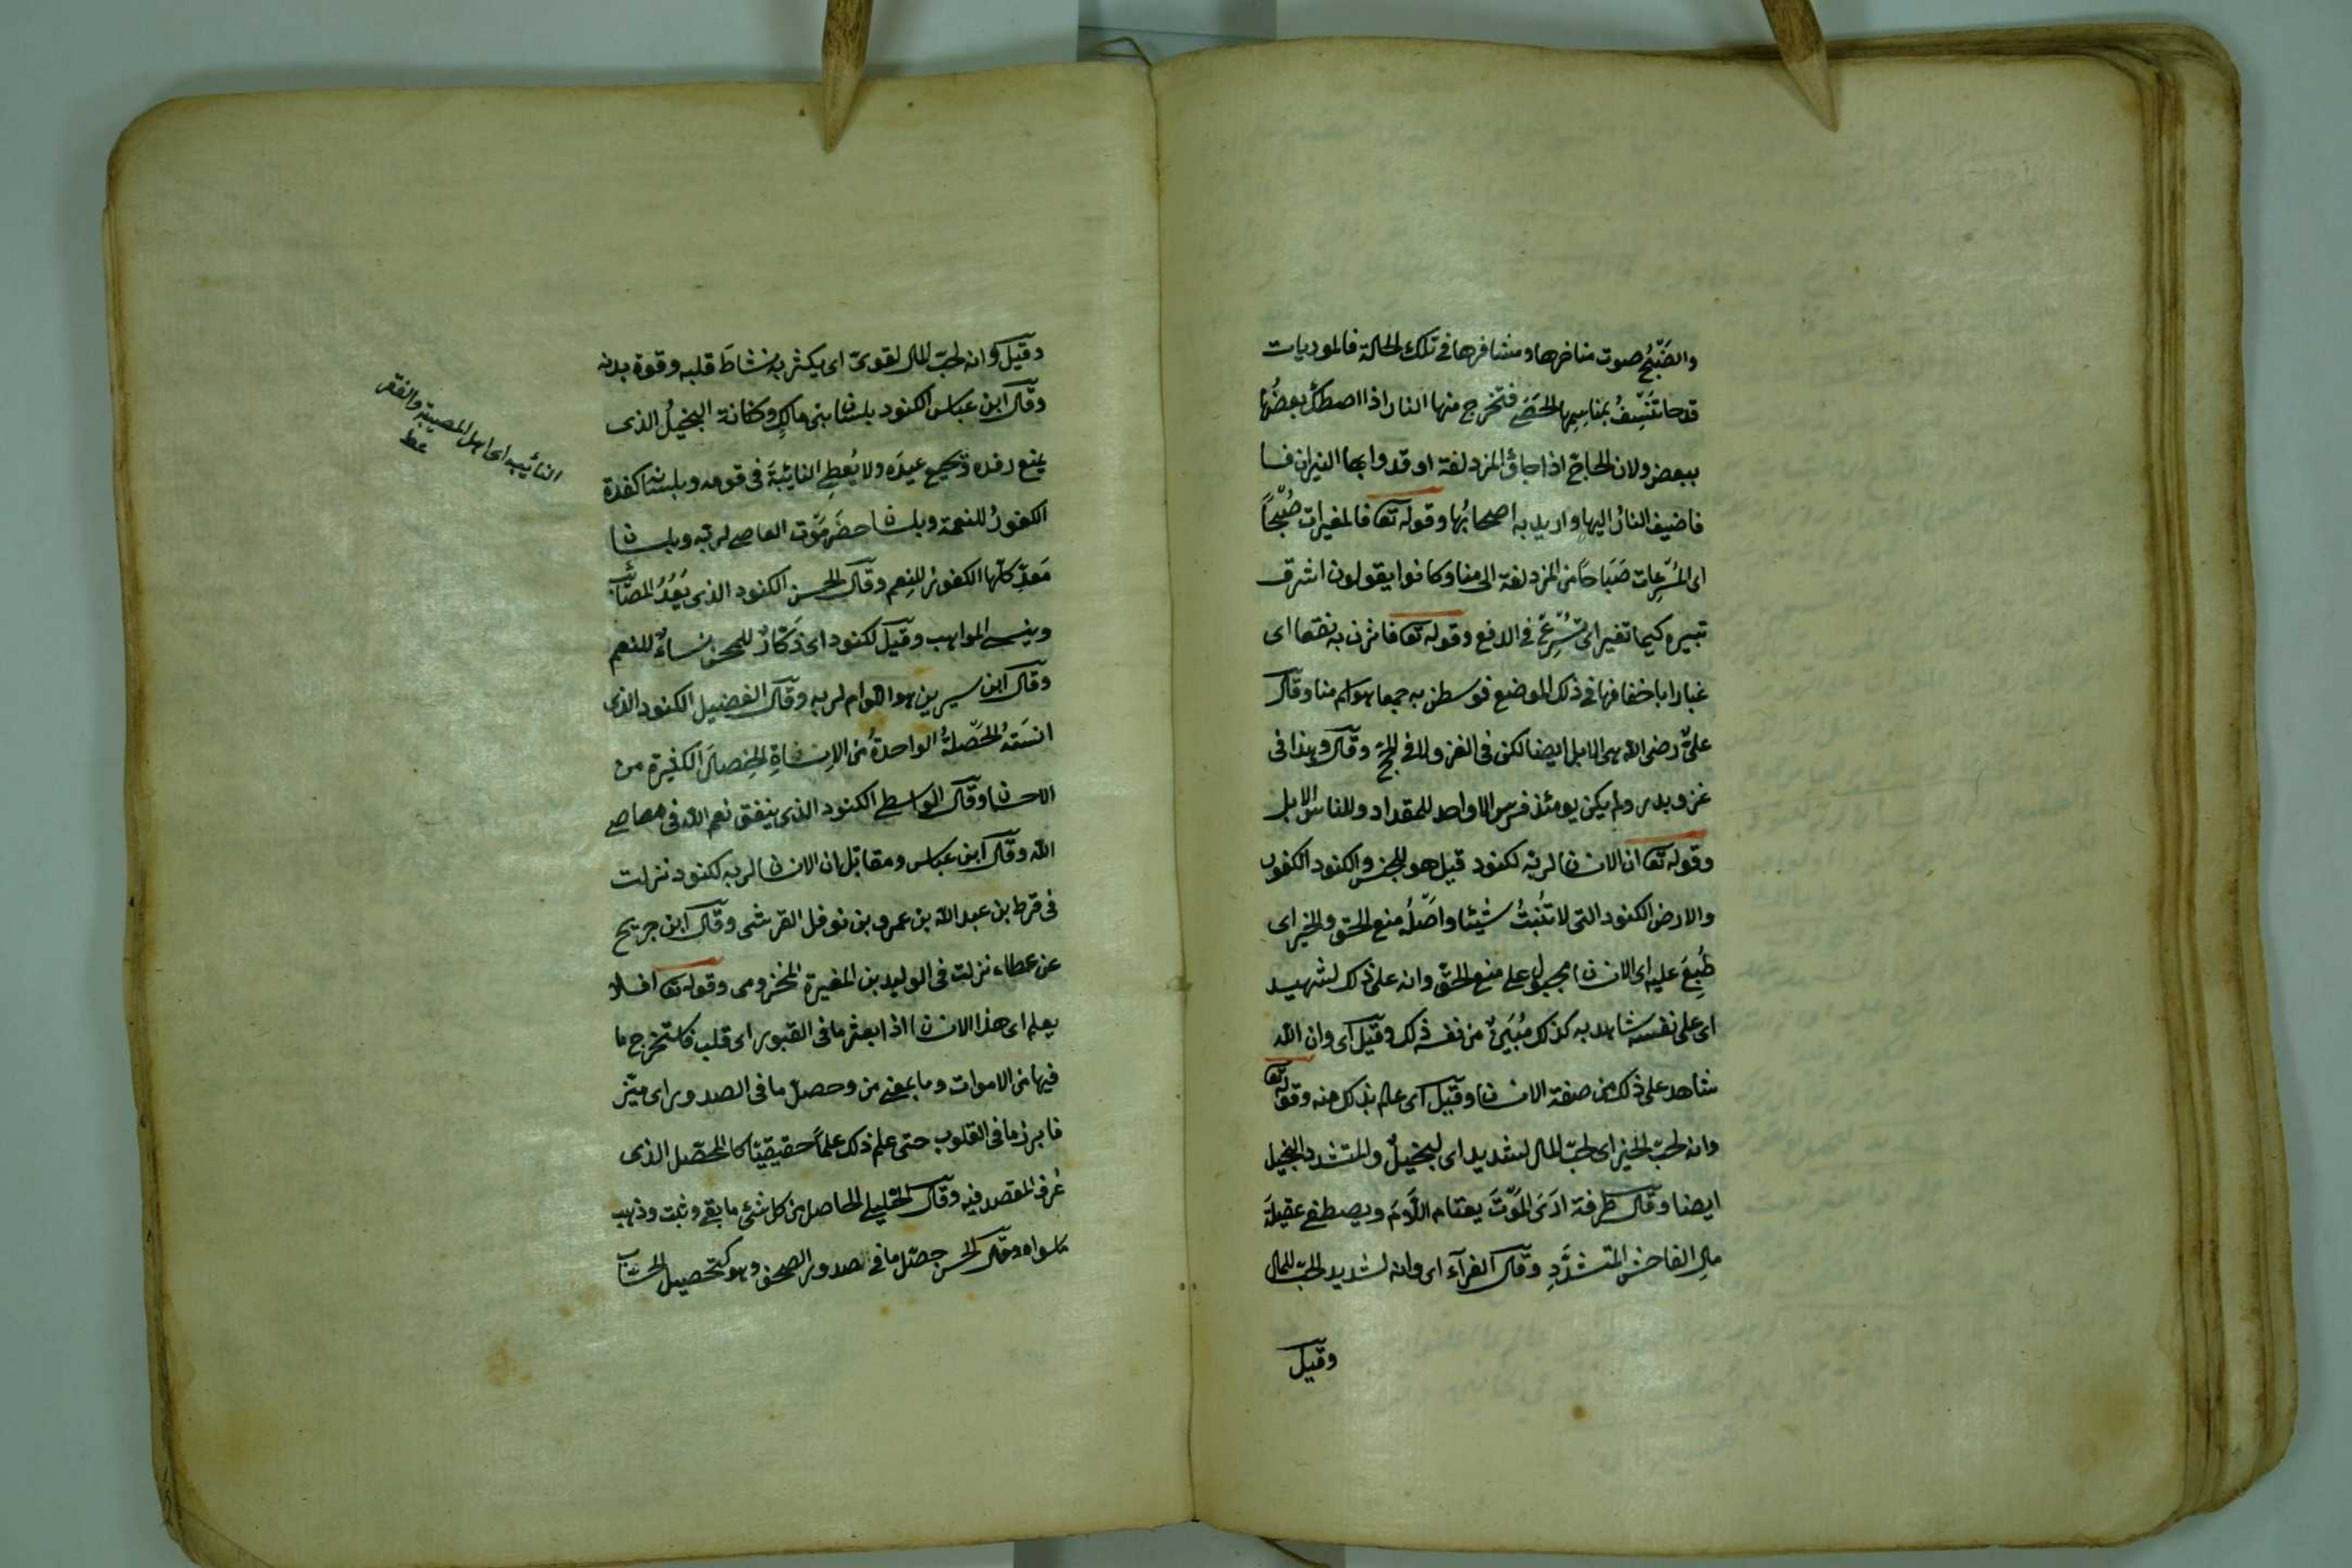 والضَّبْحُ صوت مناخرها ومشافرها في تلك الحالة فالموريات
قدحا تنسف بمناسمها الحصى فتخرج منها النار اذا اصطك بعضها
ببعض ولان الحاج اذا جاؤ المزدلفة اوقدوا بها النيران
فاضيف النار اليها واريد به اصحابُها وقوله تعا فالمغيرات صُبْحًا
اى المُسْرِعات صَبَاحًا من المزدلفة الى منا وكانوا يقولون اشرق
ثبيره كيما تغير اى تسرع في الدفع وقوله تعا فاثرن به نقعا اى
غبارا باخفافها في ذلك الموضع فوسطن به جمعا هو اسم منا وقال
علىّ رضى الله هى الابل ايضا لكن في الغزو لا في الحج وقال وهذا في
غزو بدر ولم يكن يومئذ فرس الا واحد للمقداد وللناس الابل
وقوله تعا ان الانسان لربه لكنود قيل هو للجنس والكنود الكفور
والارض الكنود التى لا تُنْبِتُ شيئا واَصْلُه منع الحق والخير اى
طُبِعَ عليه اى الانسان مجبول على منع الحق وانه على ذلك لشهيد
اى على نفسه شاهد به كذلك من نفسه ذلك وقيل اى وان الله
شاهد على ذلك من صفة الانسان وقيل اى عالم بذلك منه وقوله تعا
وانه لحبّ الخير اى لحبّ المال لشديد اى لبخيلٌ والمتشدد البخيل
ايضا وقال طرفة ارَىَ المَوْتَ يعتام اللَّؤمَ ويصطفى عقيلة
مالِ الفاحش المتشدَّدِ وقال الفرآء اى وانه لشديد الحبّ للمال
وقيل
وقيل وانه لحبّ المال لقوىّ اى يكثر به نشاطَ قلبه وقوة بدنه
وقال ابن عباس الكنود بلسان بنى مالكٍ وكنانة البخيلُ الذى
يمنع رفده ويجيع عبدَه ولا يُعطِى النايبَةَ في قومه وبلسان كندة
الكفورُ للنعمة وبلسان حضرَمَوْت العاصى لربه وبلسان
مَعدٍّ كلّها الكفور للنِعم وقال الحسن الكنود الذى يَعُدُّ المصائب
وينسى المواهب وقيل لكنود اى ذَكّارٌ للمحن نساءٌ للنعم
وقال ابن سيرين هو اللوام لربه وقال الفضيل الكنود الذى
انسَتْهُ الخَصْلةُ الواحدةُ من الاِساءةِ الخِصالَ الكثيرة من
الاحسان وقال الواسطى الكنود الذى ينفق نعم الله في معاصى
الله وقال ابن عباس ومقاتل ان الانسان لربه لكنود نزلت
في قرط بن عبد الله بن عمرو بن نوفل القرشى وقال ابن جريج
عن عطاء نزلت في الوليد بن المغيرة المخزومى وقوله تعا افلا
يعلم اى هذا الانسان اذا بعثر ما في القبور اى قلب فاستخرج ما
فيها من الاموات وما بمعنى من وحصل ما في الصدور اى ميّز
فابرز ما في القلوب حتى علم ذلك علماً حقيقيّا كالمحصّل الذى
عُرف المقصد فيه وقال الخليل الحاصل من كل شئ ما بقى وثبت وذهب
ماسواه وقال الحسن حصّل ما في الصدور الصحف وهو كتحصيل الحساب
النائيبه اى اهل المصيبة والفقر
عط